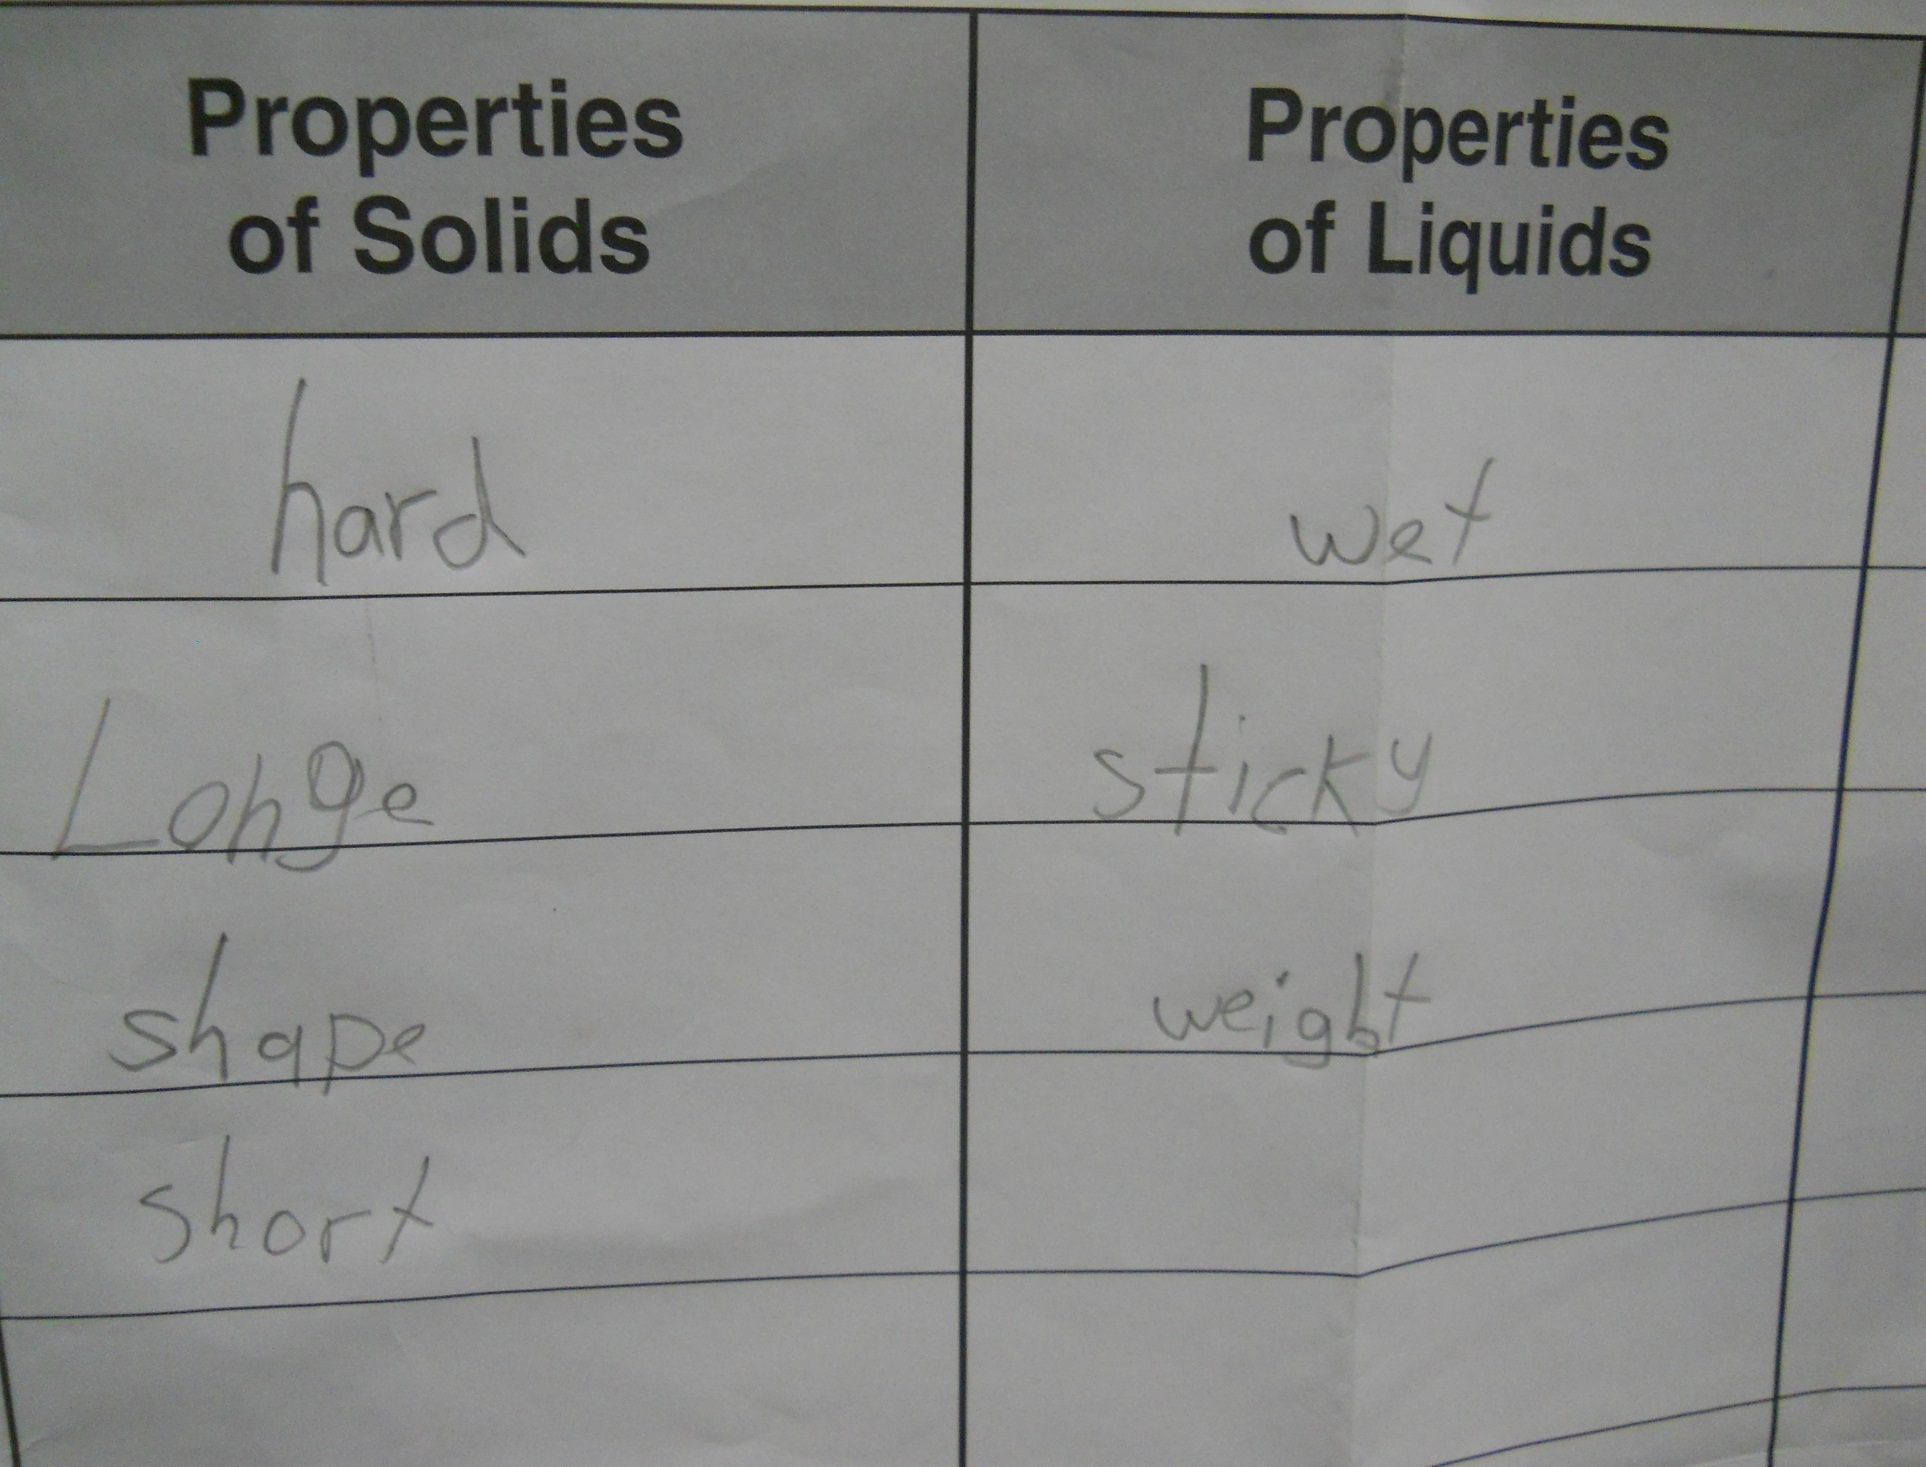 Properties
of Solids
Properties
of Liquids
hard
wet
Longe
sticky
shape
weight
short